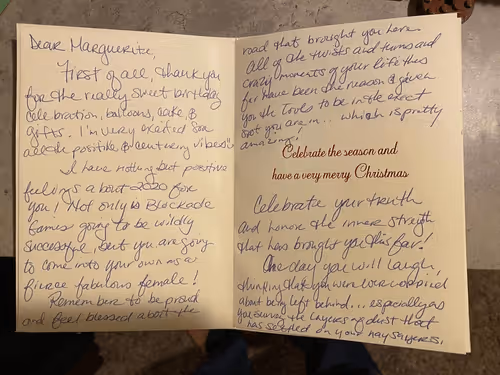 Dear Marguerite,
First of all, thank you
for the really sweet birthday
celebration, balloons, cake, &
gifts. I'm very excited for
all the positive & century vibes!!
I have nothing but positive
feelings about 2020 for
you! Not only is Blockade
Games going to be wildly
successful, but you are going
to come into your own as a
fierce fabulous female!
Remember to be proud
and feel blessed about the
road that brought you here.
All of the twists and turns and
crazy moments of your life thus
far have been the reason & given
you the tools to be in the exact
spot you are in... which is pretty
amazing!
Celebrate the season and
have a very merry Christmas
Celebrate your truth
and honor the inner strength
that has brought you this far!
One day you will laugh,
thinking that you were worried
about being left behind... especially as
you survey the layers of dust that
has settled on your naysayers.